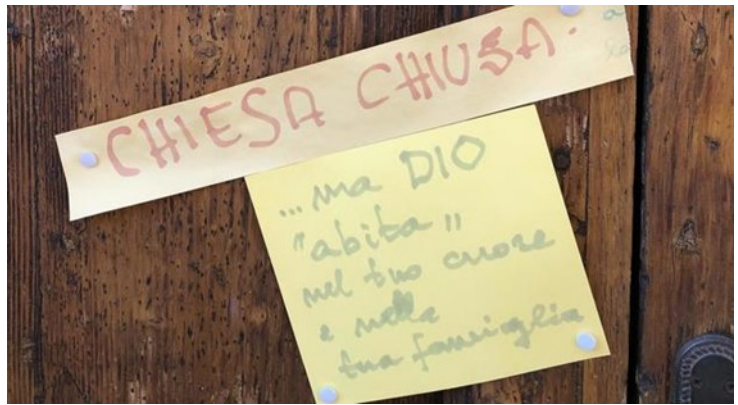 CHIESA CHIUSA.
...ma DIO
"abita"
nel tuo cuore
e nella
tua famiglia